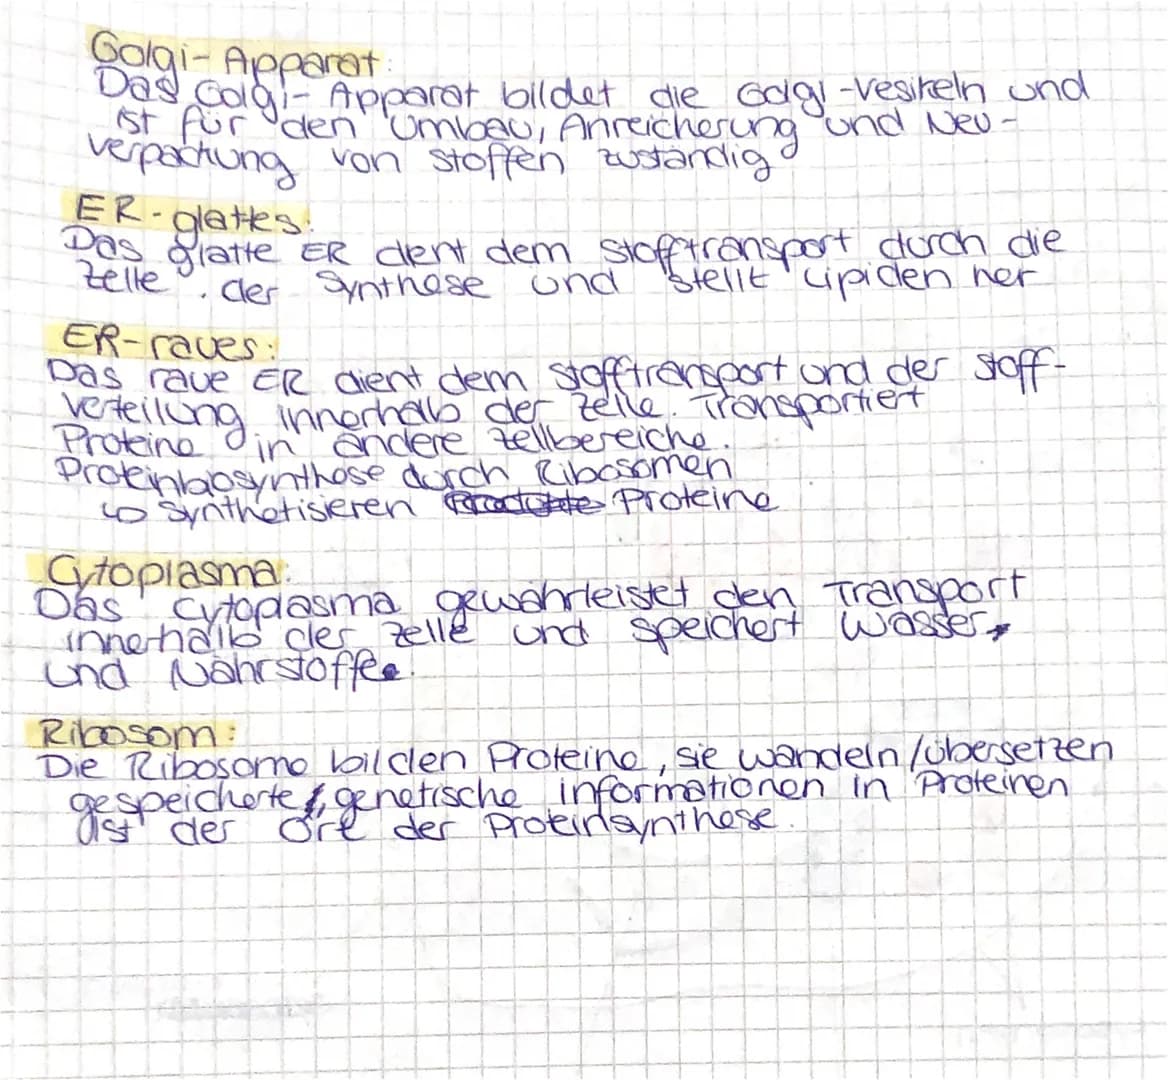 Golgi-Apparat:
Das Golgi-Apparat bildet die Golgi-Vesikeln und
ist für den Umbau, Anreicherung und Neu-
verpackung von Stoffen zuständig
ER-glattes:
Das glatte ER dient dem Stofftransport durch die
Zelle. der Synthese und stellt Lipiden her
ER-raues:
Das raue ER dient dem Stofftransport und der Stoff-
verteilung innerhalb der Zelle. Transportiert
Proteine in andere Zellbereiche.
Proteinbiosynthese durch Ribosomen
↳ Synthetisieren Proteine
Cytoplasma:
Das Cytoplasma gewährleistet den Transport
innerhalb der Zelle und speichert Wasser
und Nährstoffe.
Ribosom:
Die Ribosome bilden Proteine, sie wandeln/übersetzen
gespeicherte genetische informationen in Proteinen
ist der Ort der Proteinsynthese.